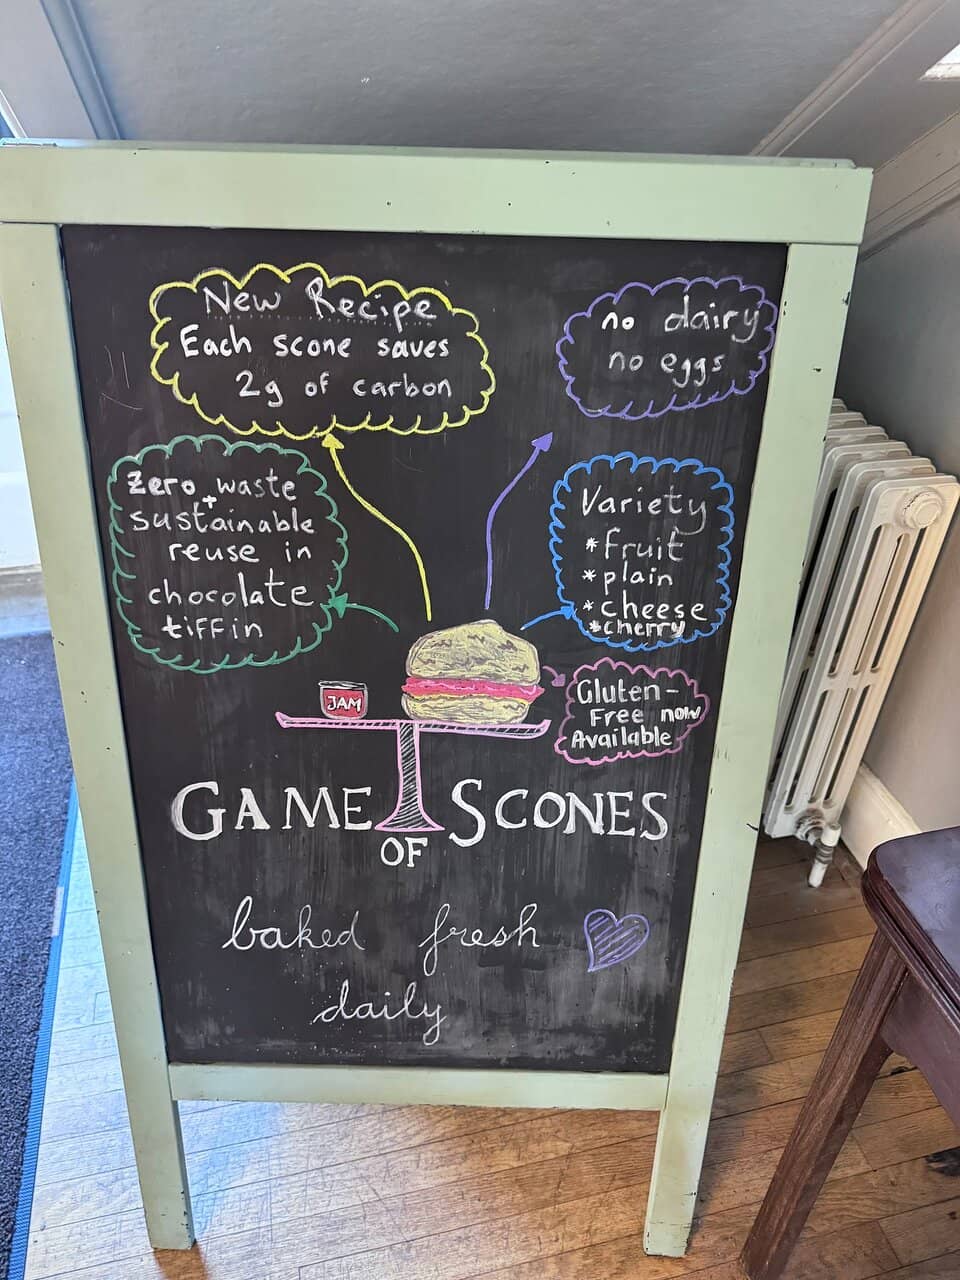 New Recipe
Each scone saves
2g of carbon
no dairy
no eggs
Zero waste
+
sustainable
reuse in
chocolate
tiffin
Variety
* fruit
* plain
* cheese
* cherry
Gluten-
Free now
Available
JAM
GAME SCONES
OF
baked fresh
daily